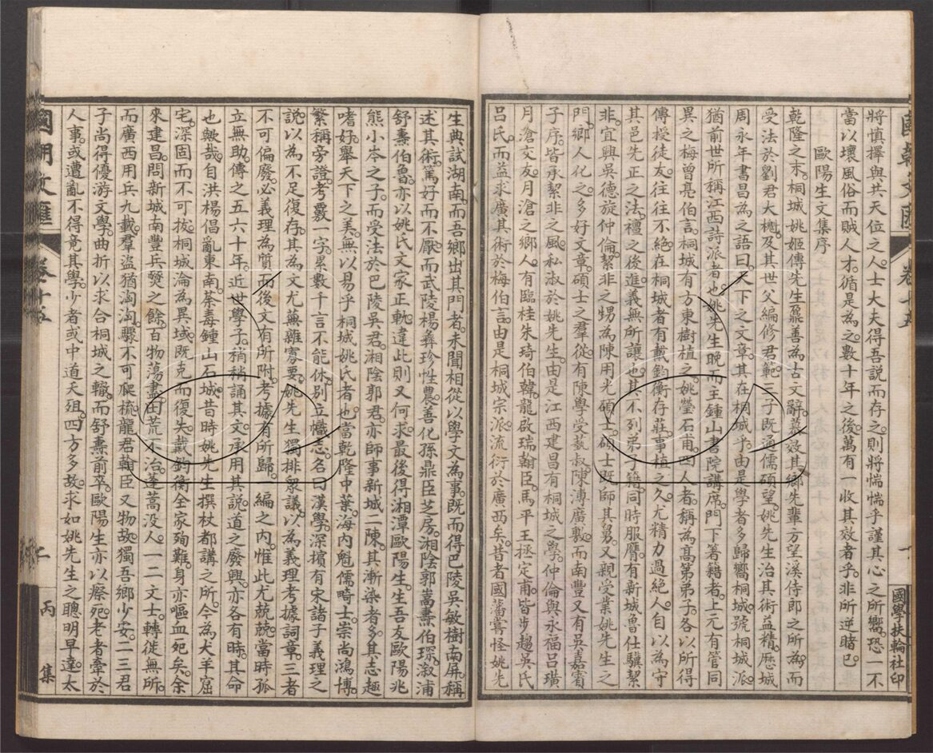 將慎擇與共天位之人士大夫得吾說而存之則將惴惴乎謹其心之所嚮恐一不
當以壞風俗而賊人才循是為之數十年之後萬有一收其效者乎非所逆睹已
歐陽生文集序
乾隆之末桐城姚姬傳先生鼐善為古文辭慕效其鄉先輩方望溪侍郎之所為而
受法於劉君大櫆及其世父編修君範三子既通儒碩望姚先生治其術益精歷城
周永年書昌為之語曰天下之文章其在桐城乎由是學者多歸嚮桐城號桐城派
猶前世所稱江西詩派者也姚先生晚而主鍾山書院講席門下著籍者上元有管同
異之梅曾亮伯言桐城有方東樹植之姚瑩石甫四人者稱為高第弟子各以所得
傳授徒友往往不絕在桐城者有戴鈞衡存莊事植之久尤精力過絕人自以為守
其邑先正之法禮之後進義無所讓也其不列弟子籍同時服膺有新城魯仕驥絜
非宜興吳德旋仲倫絜非之甥為陳用光碩士碩士既師其舅又親受業姚先生之
門鄉人化之多好文章碩士之羣從有陳學受蓺叔陳溥廣敷而南豐又有吳嘉賓
子序皆承絜非之風私淑於姚先生由是江西建昌有桐城之學仲倫與永福呂璜
月滄交友月滄之鄉人有臨桂朱琦伯韓龍啟瑞翰臣馬平王拯定甫皆步趨吳氏
呂氏而益求廣其術於梅伯言由是桐城宗派流衍於廣西矣昔者國藩嘗怪姚先
國學扶輪社印
生典試湖南而吾鄉出其門者未聞相從以學文為事既而得巴陵吳敏樹南屏稱
述其術篤好而不厭而武陵楊彝珍性農善化孫鼎臣芝房湘陰郭嵩燾伯琛漵浦
舒燾伯魯亦以姚氏文家正軌違此則又何求最後得湘潭歐陽生生吾友歐陽兆
熊小岑之子而受法於巴陵吳君湘陰郭君亦師事新城二陳其漸染者多其志趨
嗜好舉天下之美無以易乎桐城姚氏者也當乾隆中葉海內魁儒畸士崇尚鴻博
繁稱旁證考覈一字累數千言不能休別立幟志名曰漢學深擯有宋諸子義理之
說以為不足復存其為文尤蕪雜寡要姚先生獨排眾議以為義理考據詞章三者
不可偏廢必義理為質而後文有所附考據有所歸一編之內惟此尤兢兢當時孤
立無助傳之五六十年近世學子稍稍誦其文承用其說道之廢興亦各有時其命
也歟哉自洪楊倡亂東南荼毒鍾山石城昔時姚先生撰杖都講之所今為犬羊窟
宅深固而不可拔桐城淪為異域既克而復失戴鈞衡全家殉難身亦嘔血死矣余
來建昌問新城南豐兵燹之餘百物蕩盡田荒不治蓬蒿没人一二文士轉徙無所
而廣西用兵九載羣盜猶洶洶驟不可爬梳龍君翰臣又物故獨吾鄉少安二三君
子尚得優游文學曲折以求合桐城之轍而舒燾前卒歐陽生亦以瘵死老者牽於
人事或遭亂不得竟其學少者或中道夭殂四方多故求如姚先生之聰明早達太
國朝文匯
卷十五
二
丙
集